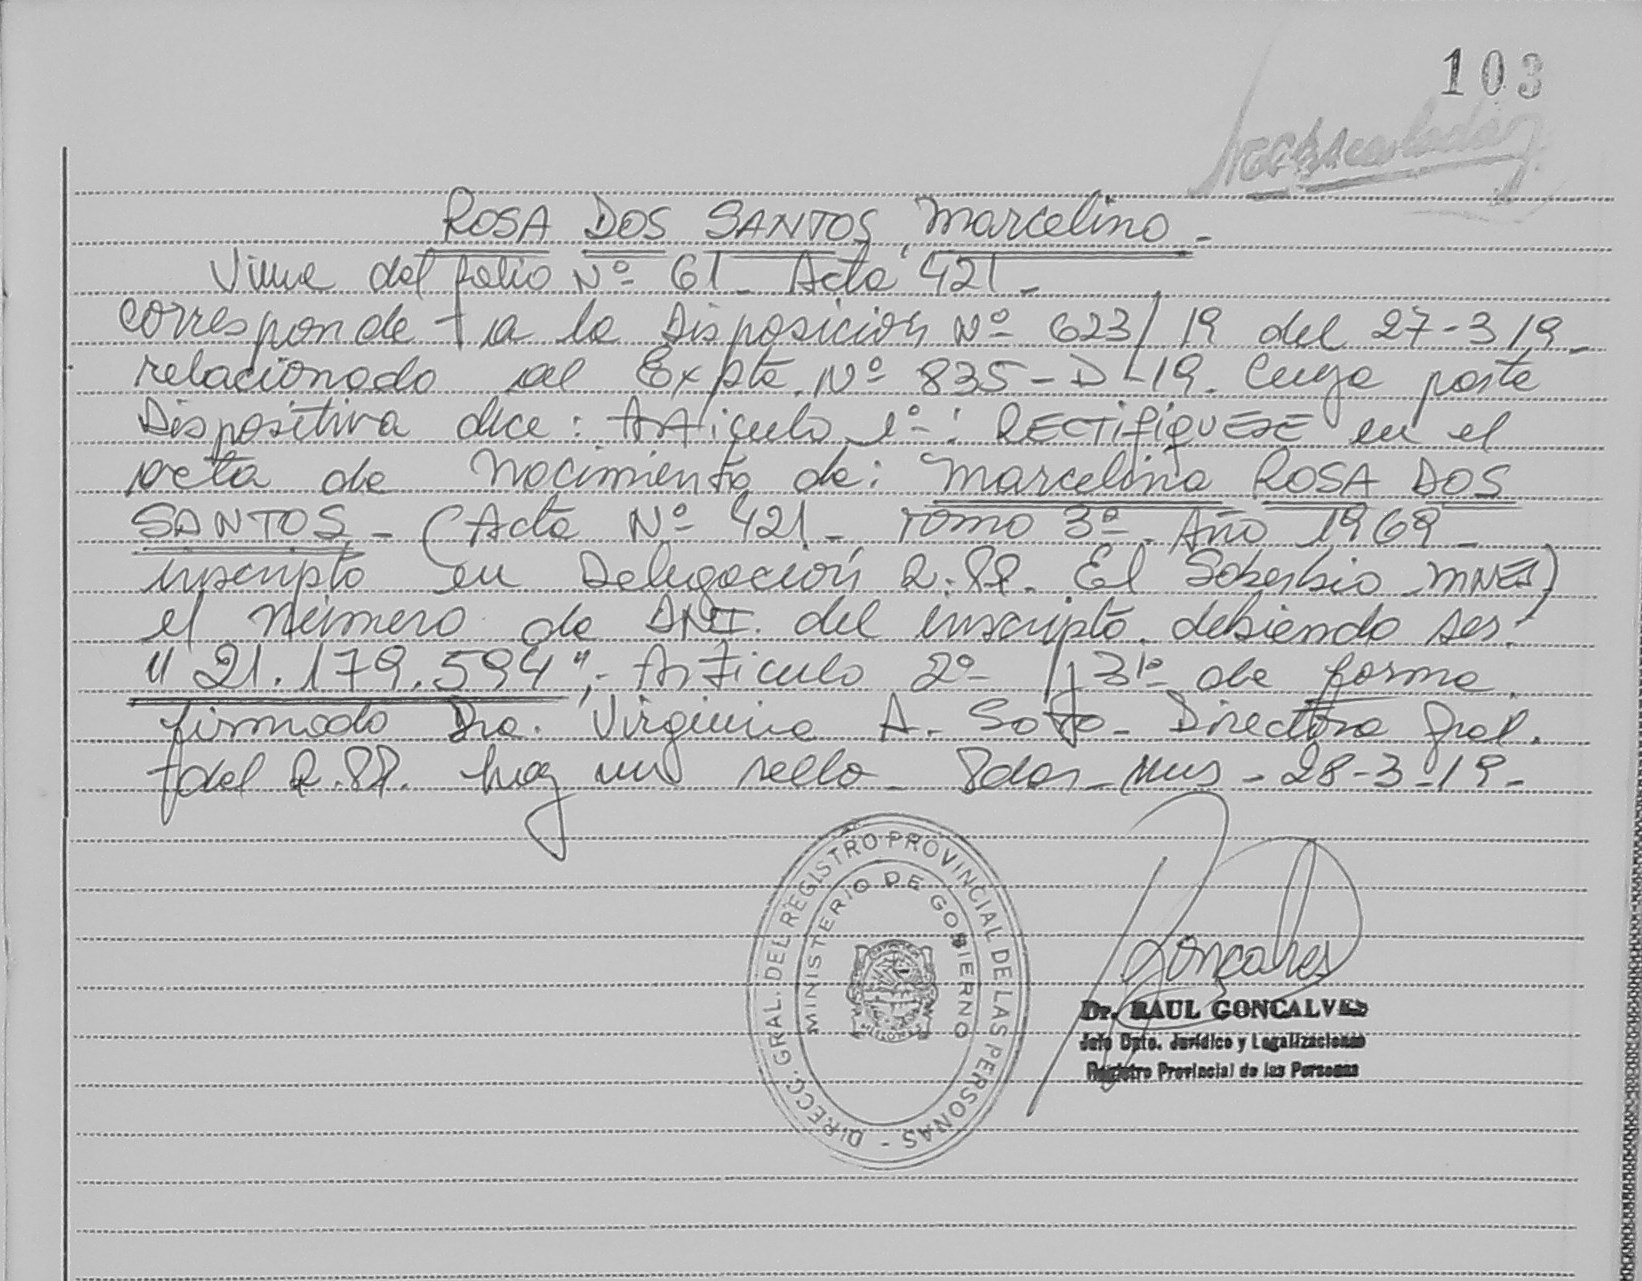 103
ROSA DOS SANTOS, Marcelino -
Viene del folio Nº 61 - Acta 421 -
corresponde a la Disposición Nº 623/19 del 27-3-19 -
relacionado al Expte. Nº 835-D-19. Cuya parte
Dispositiva dice: ARticulo 1º: RECTIFIQUESE en el
acta de Nacimiento de: Marcelino ROSA DOS
SANTOS - (Acta Nº 421 - Tomo 3º - Año 1969 -
inscripto en Delegación R.PP. El Soberbio MNES)
el número de DNI. del inscripto, debiendo ser:
"21.179.594",- Articulo 2º y 3º de forma.
firmado Dra. Virginia A. Soto - Directora Gral.
del R.PP. hay un sello - Pdas - Mns - 28-3-19 -
DIRECC. GRAL. DEL REGISTRO PROVINCIAL DE LAS PERSONAS -
MINISTERIO DE GOBIERNO
MISIONES
Goncalves
Dr. RAUL GONCALVES
Jefe Dpto. Jurídico y Legalizaciones
Registro Provincial de las Personas